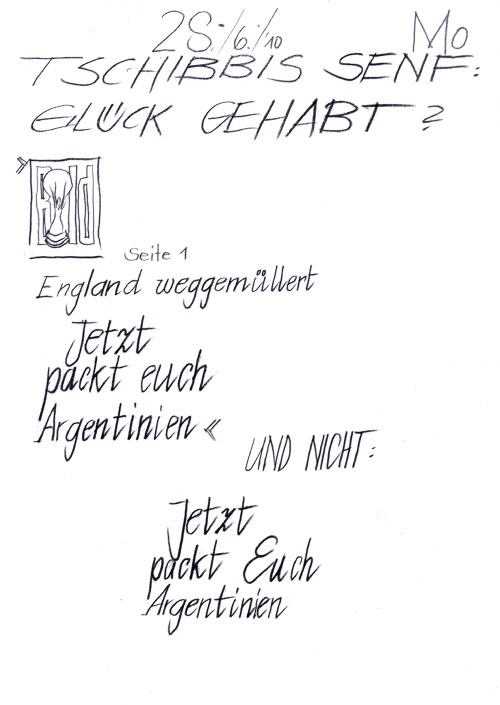 28./6./'10 Mo
TSCHIBBIS SENF:
GLÜCK GEHABT?
» Bild
Seite 1
England weggemüllert
Jetzt
packt euch
Argentinien «
UND NICHT:
Jetzt
packt Euch
Argentinien